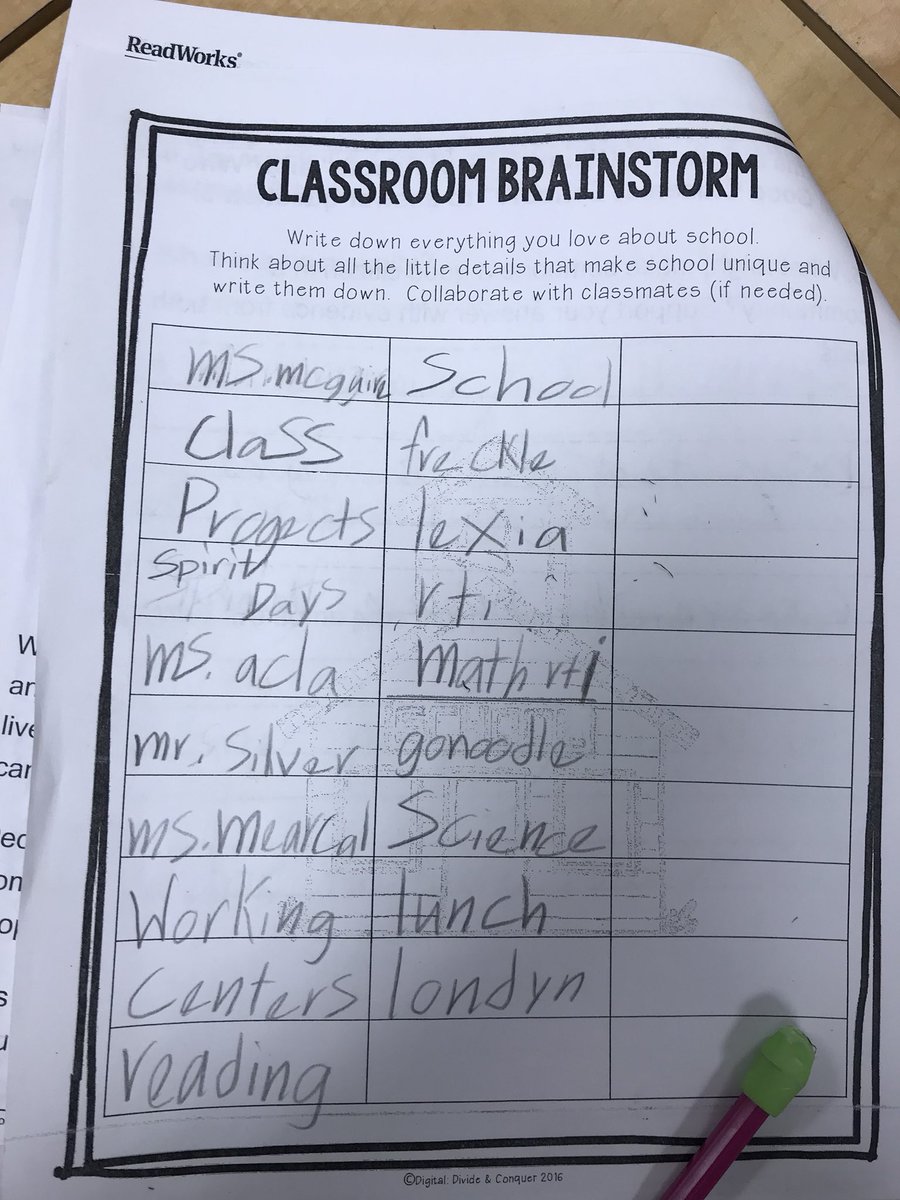 ReadWorks®
CLASSROOM BRAINSTORM
Write down everything you love about school.
Think about all the little details that make school unique and
write them down. Collaborate with classmates (if needed).
ms. mcguire School
Class freckle
Progects lexia
Spirit
Days rti
ms. acla math rti
mr. Silver gonoodle
ms. mearcal Science
Working lunch
Centers londyn
reading
©Digital: Divide & Conquer 2016